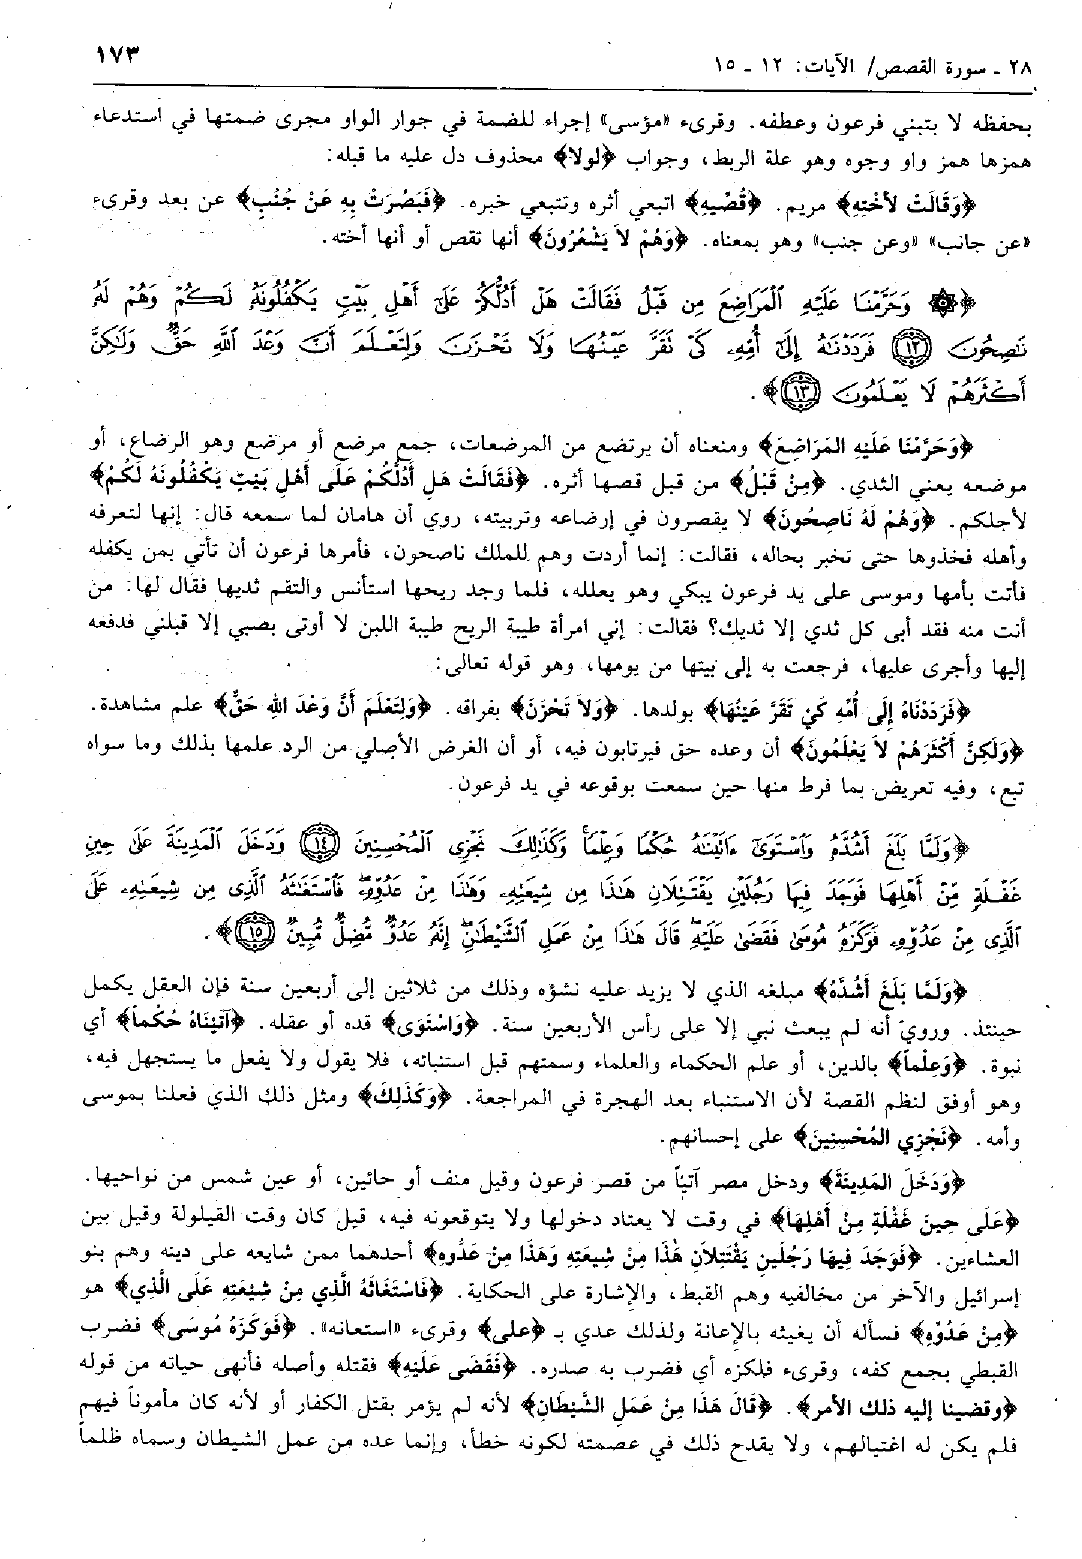 ٢٨ ـ سورة القصص/ الآيات: ١٢ ـ ١٥
١٧٣
بحفظه لا بتبني فرعون وعطفه. وقرىء «مؤسى» إجراء للضمة في جوار الواو مجرى ضمتها في استدعاء
همزها همز واو وجوه وهو علة الربط، وجواب ﴿لولا﴾ محذوف دل عليه ما قبله:
﴿وَقَالَتْ لأُخْتِهِ﴾ مريم. ﴿قُصِّيهِ﴾ اتبعي أثره وتتبعي خبره. ﴿فَبَصُرَتْ بِهِ عَنْ جُنُبٍ﴾ عن بعد وقرىء
«عن جانب» «وعن جنب» وهو بمعناه. ﴿وَهُمْ لاَ يَشْعُرُونَ﴾ أنها تقص أو أنها أخته.
﴿۞ وَحَرَّمْنَا عَلَيْهِ ٱلْمَرَاضِعَ مِن قَبْلُ فَقَالَتْ هَلْ أَدُلُّكُمْ عَلَىٰٓ أَهْلِ بَيْتٍ يَكْفُلُونَهُۥ لَكُمْ وَهُمْ لَهُۥ
نَٰصِحُونَ ١٢ فَرَدَدْنَٰهُ إِلَىٰٓ أُمِّهِۦ كَىْ تَقَرَّ عَيْنُهَا وَلَا تَحْزَنَ وَلِتَعْلَمَ أَنَّ وَعْدَ ٱللَّهِ حَقٌّ وَلَٰكِنَّ
أَكْثَرَهُمْ لَا يَعْلَمُونَ ١٣﴾.
﴿وَحَرَّمْنَا عَلَيْهِ المَرَاضِعَ﴾ ومنعناه أن يرتضع من المرضعات، جمع مرضع أو مرضع وهو الرضاع، أو
موضعه يعني الثدي. ﴿مِنْ قَبْلُ﴾ من قبل قصها أثره. ﴿فَقَالَتْ هَلِ أَدُلُّكُمْ عَلَى أَهْلِ بَيْتٍ يَكْفُلُونَهُ لَكُمْ﴾
لأجلكم. ﴿وَهُمْ لَهُ نَاصِحُونَ﴾ لا يقصرون في إرضاعه وتربيته، روي أن هامان لما سمعه قال: إنها لتعرفه
وأهله فخذوها حتى تخبر بحاله، فقالت: إنما أردت وهم للملك ناصحون، فأمرها فرعون أن تأتي بمن يكفله
فأتت بأمها وموسى على يد فرعون يبكي وهو يعلله، فلما وجد ريحها استأنس والتقم ثديها فقال لها: من
أنت منه فقد أبى كل ثدي إلا ثديك؟ فقالت: إني امرأة طيبة الريح طيبة اللبن لا أوتى بصبي إلا قبلني فدفعه
إليها وأجرى عليها، فرجعت به إلى بيتها من يومها، وهو قوله تعالى:
﴿فَرَدَدْنَاهُ إِلَى أُمِّهِ كَيْ تَقَرَّ عَيْنُهَا﴾ بولدها. ﴿وَلاَ تَحْزَنَ﴾ بفراقه. ﴿وَلِتَعْلَمَ أَنَّ وَعْدَ اللهِ حَقٌّ﴾ علم مشاهدة.
﴿وَلَكِنَّ أَكْثَرَهُمْ لاَ يَعْلَمُونَ﴾ أن وعده حق فيرتابون فيه، أو أن الغرض الأصلي من الرد علمها بذلك وما سواه
تبع، وفيه تعريض بما فرط منها حين سمعت بوقوعه في يد فرعون.
﴿وَلَمَّا بَلَغَ أَشُدَّهُۥ وَٱسْتَوَىٰٓ ءَاتَيْنَٰهُ حُكْمًا وَعِلْمًا وَكَذَٰلِكَ نَجْزِى ٱلْمُحْسِنِينَ ١٤ وَدَخَلَ ٱلْمَدِينَةَ عَلَىٰ حِينِ
غَفْلَةٍ مِّنْ أَهْلِهَا فَوَجَدَ فِيهَا رَجُلَيْنِ يَقْتَتِلَانِ هَٰذَا مِن شِيعَتِهِۦ وَهَٰذَا مِنْ عَدُوِّهِۦ فَٱسْتَغَٰثَهُ ٱلَّذِى مِن شِيعَتِهِۦ عَلَى
ٱلَّذِى مِنْ عَدُوِّهِۦ فَوَكَزَهُۥ مُوسَىٰ فَقَضَىٰ عَلَيْهِ قَالَ هَٰذَا مِنْ عَمَلِ ٱلشَّيْطَٰنِ إِنَّهُۥ عَدُوٌّ مُّضِلٌّ مُّبِينٌ ١٥﴾.
﴿وَلَمَّا بَلَغَ أَشُدَّهُ﴾ مبلغه الذي لا يزيد عليه نشؤه وذلك من ثلاثين إلى أربعين سنة فإن العقل يكمل
حينئذ. وروي أنه لم يبعث نبي إلا على رأس الأربعين سنة. ﴿وَاسْتَوَى﴾ قده أو عقله. ﴿آتَيْنَاهُ حُكْماً﴾ أي
نبوة. ﴿وَعِلْماً﴾ بالدين، أو علم الحكماء والعلماء وسمتهم قبل استنبائه، فلا يقول ولا يفعل ما يستجهل فيه،
وهو أوفق لنظم القصة لأن الاستنباء بعد الهجرة في المراجعة. ﴿وَكَذَلِكَ﴾ ومثل ذلك الذي فعلنا بموسى
وأمه. ﴿نَجْزِي المُحْسِنِينَ﴾ على إحسانهم.
﴿وَدَخَلَ المَدِينَةَ﴾ ودخل مصر آتياً من قصر فرعون وقيل منف أو حائين، أو عين شمس من نواحيها.
﴿عَلَى حِينَ غَفْلَةٍ مِنْ أَهْلِهَا﴾ في وقت لا يعتاد دخولها ولا يتوقعونه فيه، قيل كان وقت القيلولة وقيل بين
العشاءين. ﴿فَوَجَدَ فِيهَا رَجُلَينِ يَقْتَتِلاَنِ هَذَا مِنْ شِيعَتِهِ وَهَذَا مِنْ عَدُوِّهِ﴾ أحدهما ممن شايعه على دينه وهم بنو
إسرائيل والآخر من مخالفيه وهم القبط، والإشارة على الحكاية. ﴿فَاسْتَغَاثَهُ الَّذِي مِنْ شِيعَتِهِ عَلَى الَّذِي﴾ هو
﴿مِنْ عَدُوِّهِ﴾ فسأله أن يغيثه بالإعانة ولذلك عدي بـ ﴿على﴾ وقرىء «استعانه». ﴿فَوَكَزَهُ مُوسَى﴾ فضرب
القبطي بجمع كفه، وقرىء فلكزه أي فضرب به صدره. ﴿فَقَضَى عَلَيْهِ﴾ فقتله وأصله فأنهى حياته من قوله
﴿وقضينا إليه ذلك الأمر﴾. ﴿قَالَ هَذَا مِنْ عَمَلِ الشَّيطَانِ﴾ لأنه لم يؤمر بقتل الكفار أو لأنه كان مأموناً فيهم
فلم يكن له اغتيالهم، ولا يقدح ذلك في عصمته لكونه خطأ، وإنما عده من عمل الشيطان وسماه ظلماً